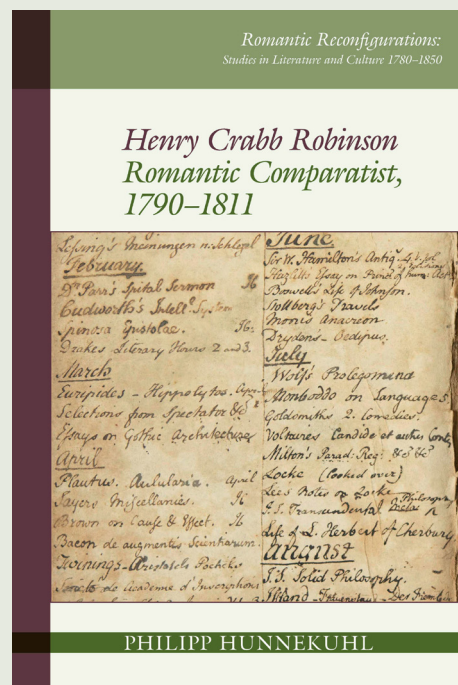 Romantic Reconfigurations:
Studies in Literature and Culture 1780–1850
Henry Crabb Robinson
Romantic Comparatist,
1790–1811
Lessing's Meinungen
February
Dr Parr's Spital Sermon
Cudworth's Intell. System
Spinoza Epistolae.
Drakes Literary Hours 2 and 3.
March
Euripides - Hippolytos. April
Selections from Spectator &c
Essays on Gothic Architecture
April
Plautus. Aulularia. April
Sayers Miscellanies.
Brown on Cause & Effect.
Bacon de augmentis Scientiarum.
Academie d'Inscriptions
June
Sir W. Hamilton's Antiq.
Hazlitt's Essay on
Boswell's Life of Johnson.
Stollberg's Travels
Anacreon
Dryden's - Oedipus.
July
Wolf's Prolegomena
Monboddo on Language 5.
Goldsmiths 2. Comedies.
Voltaires Candide et autres
Milton's Parad: Reg: &c &c
Locke (looked over)
Lee's Notes on Locke
Life of L. Herbert of Cherbury
August
J.S. Solid Philosophy.
Iffland
PHILIPP HUNNEKUHL